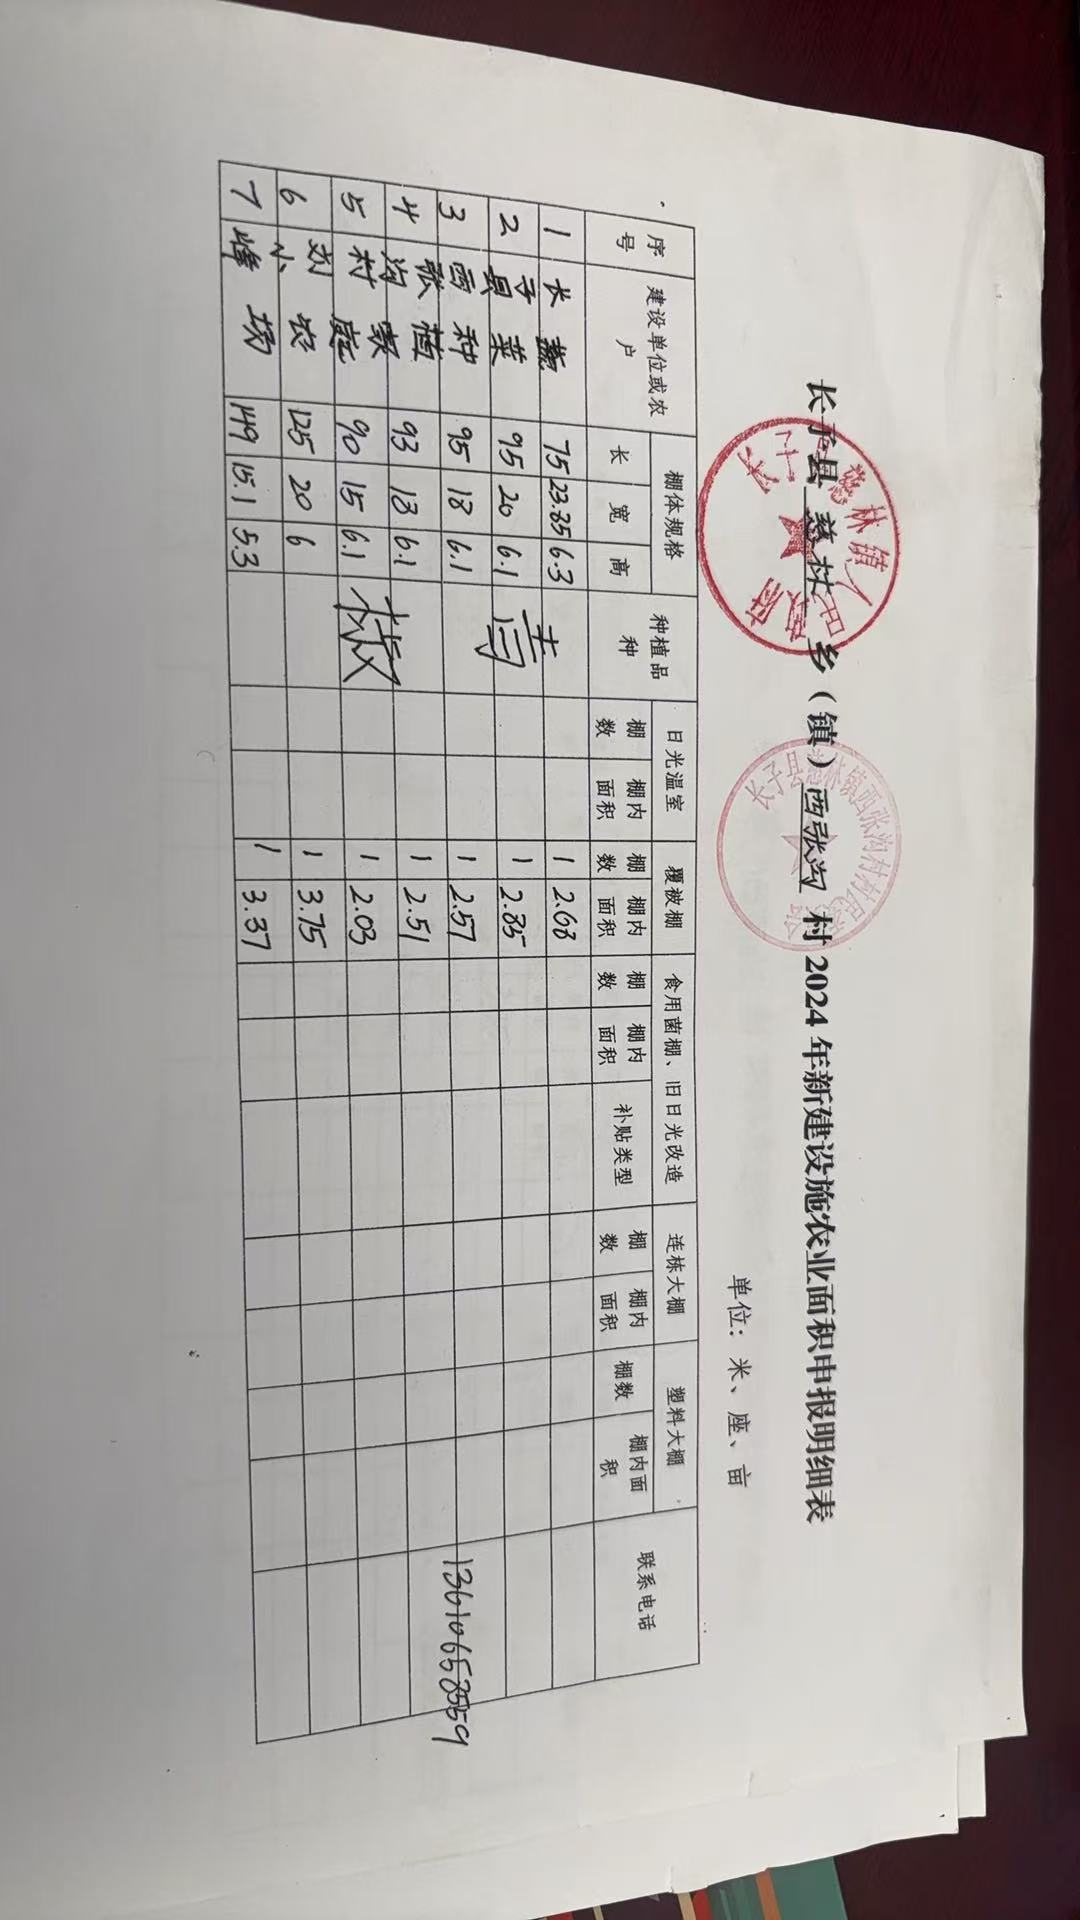 长子县慈林乡（镇）西张沟村 2024 年新建设施农业面积申报明细表
长子县慈林镇人民政府
长子县慈林镇西张沟村村民委员会
单位：米、座、亩
序号 建设单位或农户 棚体规格 种植品种 日光温室 覆被棚 食用菌棚、旧日光改造 连栋大棚 塑料大棚 联系电话
长 宽 高 棚数 棚内面积 棚数 棚内面积 棚数 棚内面积 补贴类型 棚数 棚内面积 棚数 棚内面积
长子县西张沟村刘小峰
蔬菜种植家庭农场
青椒
1 75 23.85 6.3 1 2.68
2 95 20 6.1 1 2.85
3 95 18 6.1 1 2.57 13610658559
4 93 18 6.1 1 2.51
5 90 15 6.1 1 2.03
6 125 20 6 1 3.75
7 149 15.1 5.3 1 3.37